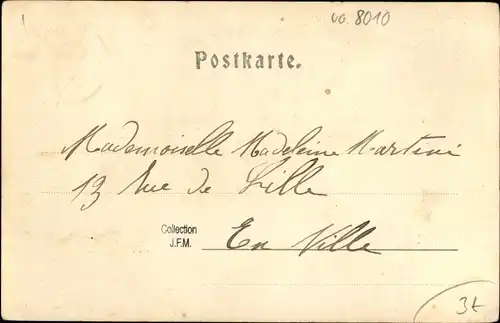 vo. 8010
Postkarte.
Mademoiselle Madeleine Martini
13 Rue de Lille
Collection
J.F.M.
En Ville